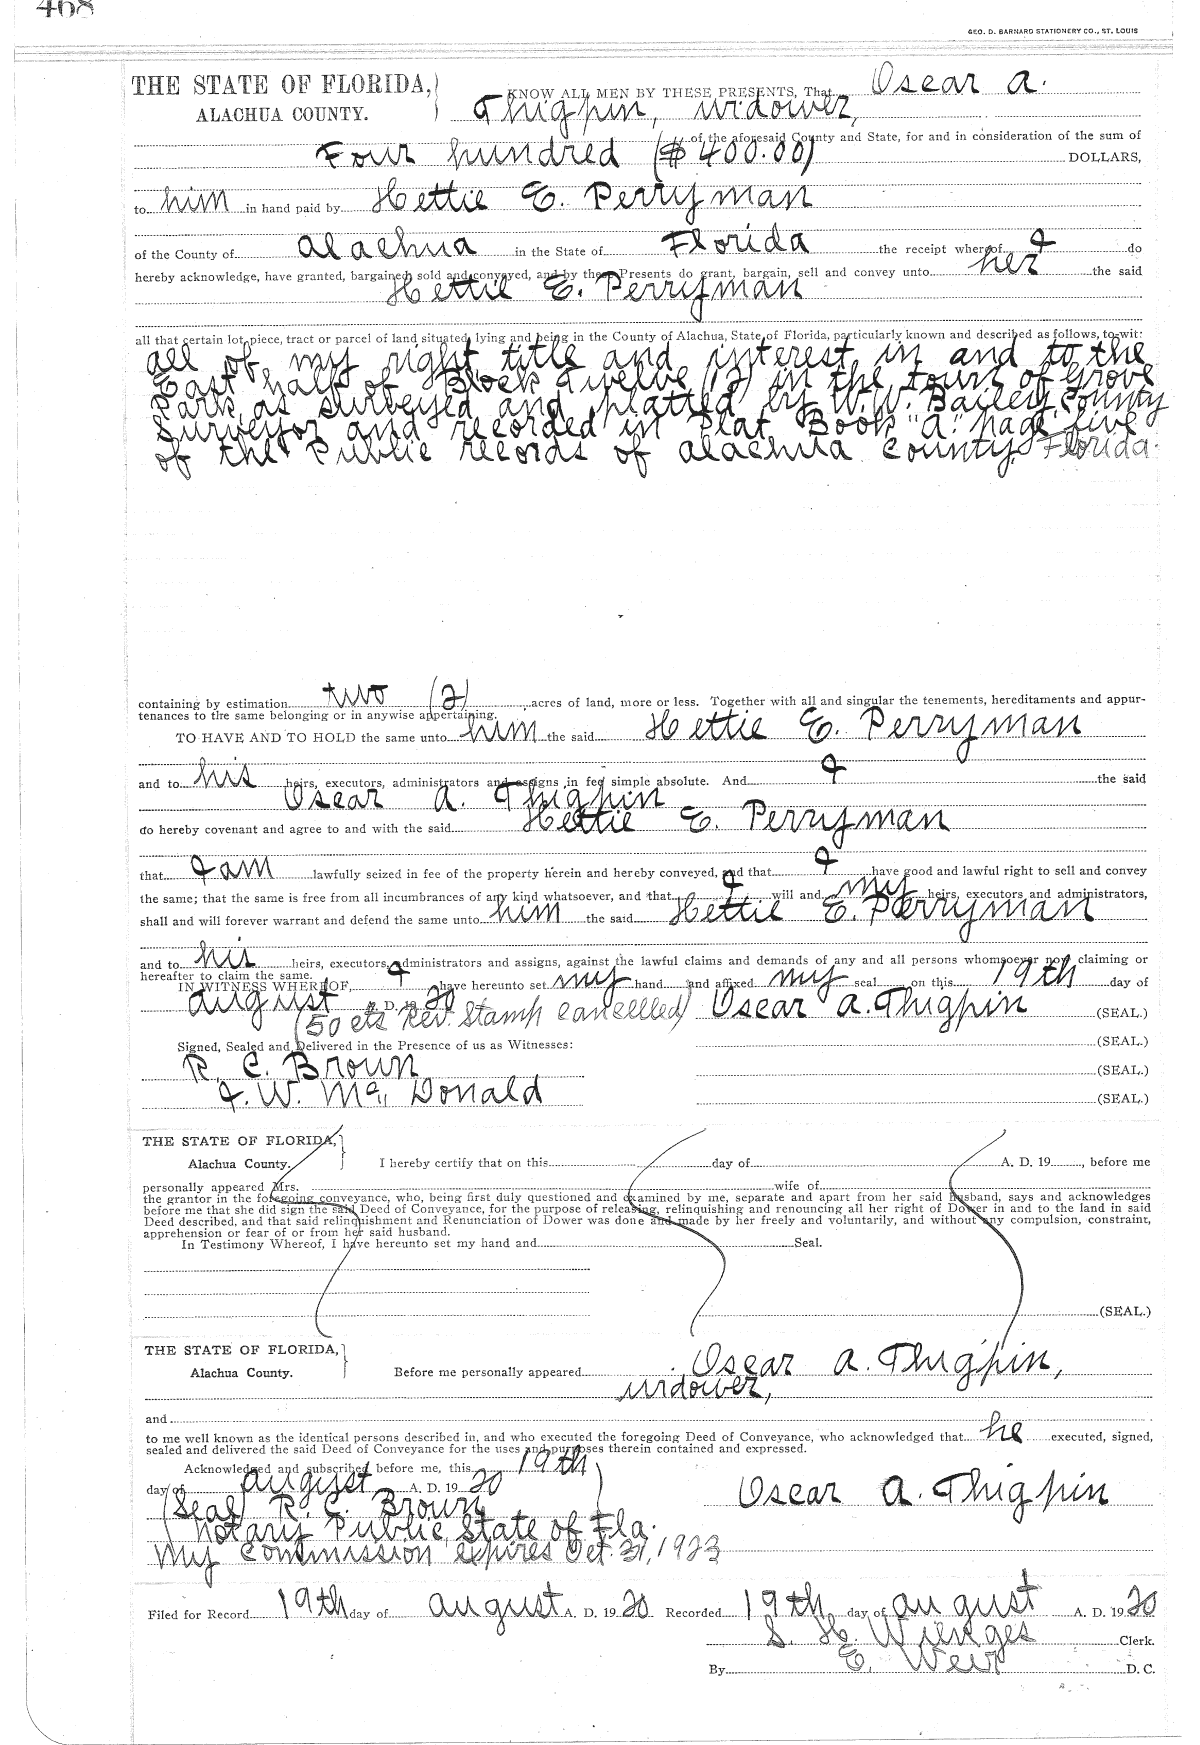 468
GEO. D. BARNARD STATIONERY CO., ST. LOUIS
THE STATE OF FLORIDA,
ALACHUA COUNTY.
KNOW ALL MEN BY THESE PRESENTS, That Oscar A.
Thigpin, widower,
of the aforesaid County and State, for and in consideration of the sum of
Four hundred ($400.00) DOLLARS,
to him in hand paid by Hettie E. Perryman
of the County of Alachua in the State of Florida the receipt whereof I do
hereby acknowledge, have granted, bargained sold and conveyed, and by these Presents do grant, bargain, sell and convey unto her the said
Hettie E. Perryman
all that certain lot, piece, tract or parcel of land situated, lying and being in the County of Alachua, State of Florida, particularly known and described as follows, to-wit:
all of my right title and interest in and to the
East half of Block Twelve (12) in the town of Grove
Park, as surveyed and platted by W.W. Bailey, County
Surveyor and recorded in Plat Book "A" page five
of the Public records of Alachua County, Florida.
containing by estimation two (2) acres of land, more or less. Together with all and singular the tenements, hereditaments and appur-
tenances to the same belonging or in anywise appertaining.
TO HAVE AND TO HOLD the same unto him the said Hettie E. Perryman
and to his heirs, executors, administrators and assigns in fee simple absolute. And I the said
Oscar A. Thigpin
do hereby covenant and agree to and with the said Hettie E. Perryman
that I am lawfully seized in fee of the property herein and hereby conveyed, and that I have good and lawful right to sell and convey
the same; that the same is free from all incumbrances of any kind whatsoever, and that I will and my heirs, executors and administrators,
shall and will forever warrant and defend the same unto him the said Hettie E. Perryman
and to his heirs, executors, administrators and assigns, against the lawful claims and demands of any and all persons whomsoever now claiming or
hereafter to claim the same.
IN WITNESS WHEREOF, I have hereunto set my hand and affixed my seal on this 19th day of
August A. D. 1920
(50 cts Rev. Stamp cancelled) Oscar A. Thigpin (SEAL.)
Signed, Sealed and Delivered in the Presence of us as Witnesses: (SEAL.)
R. C. Brown (SEAL.)
J. W. Mc. Donald (SEAL.)
THE STATE OF FLORIDA,
Alachua County.
I hereby certify that on this day of A. D. 19 , before me
personally appeared Mrs. wife of
the grantor in the foregoing conveyance, who, being first duly questioned and examined by me, separate and apart from her said husband, says and acknowledges
before me that she did sign the said Deed of Conveyance, for the purpose of releasing, relinquishing and renouncing all her right of Dower in and to the land in said
Deed described, and that said relinquishment and Renunciation of Dower was done and made by her freely and voluntarily, and without any compulsion, constraint,
apprehension or fear of or from her said husband.
In Testimony Whereof, I have hereunto set my hand and Seal.
(SEAL.)
THE STATE OF FLORIDA,
Alachua County.
Before me personally appeared Oscar A. Thigpin,
widower,
and
to me well known as the identical persons described in, and who executed the foregoing Deed of Conveyance, who acknowledged that he executed, signed,
sealed and delivered the said Deed of Conveyance for the uses and purposes therein contained and expressed.
Acknowledged and subscribed before me, this 19th
day of August A. D. 1920
Oscar A. Thigpin
(Seal) R. C. Brown
Notary Public State of Fla.
My Commission expires Oct. 31, 1923
Filed for Record 19th day of August A. D. 1920 Recorded 19th day of August A. D. 1920
S. H. Wienges Clerk.
By E. Weir D. C.